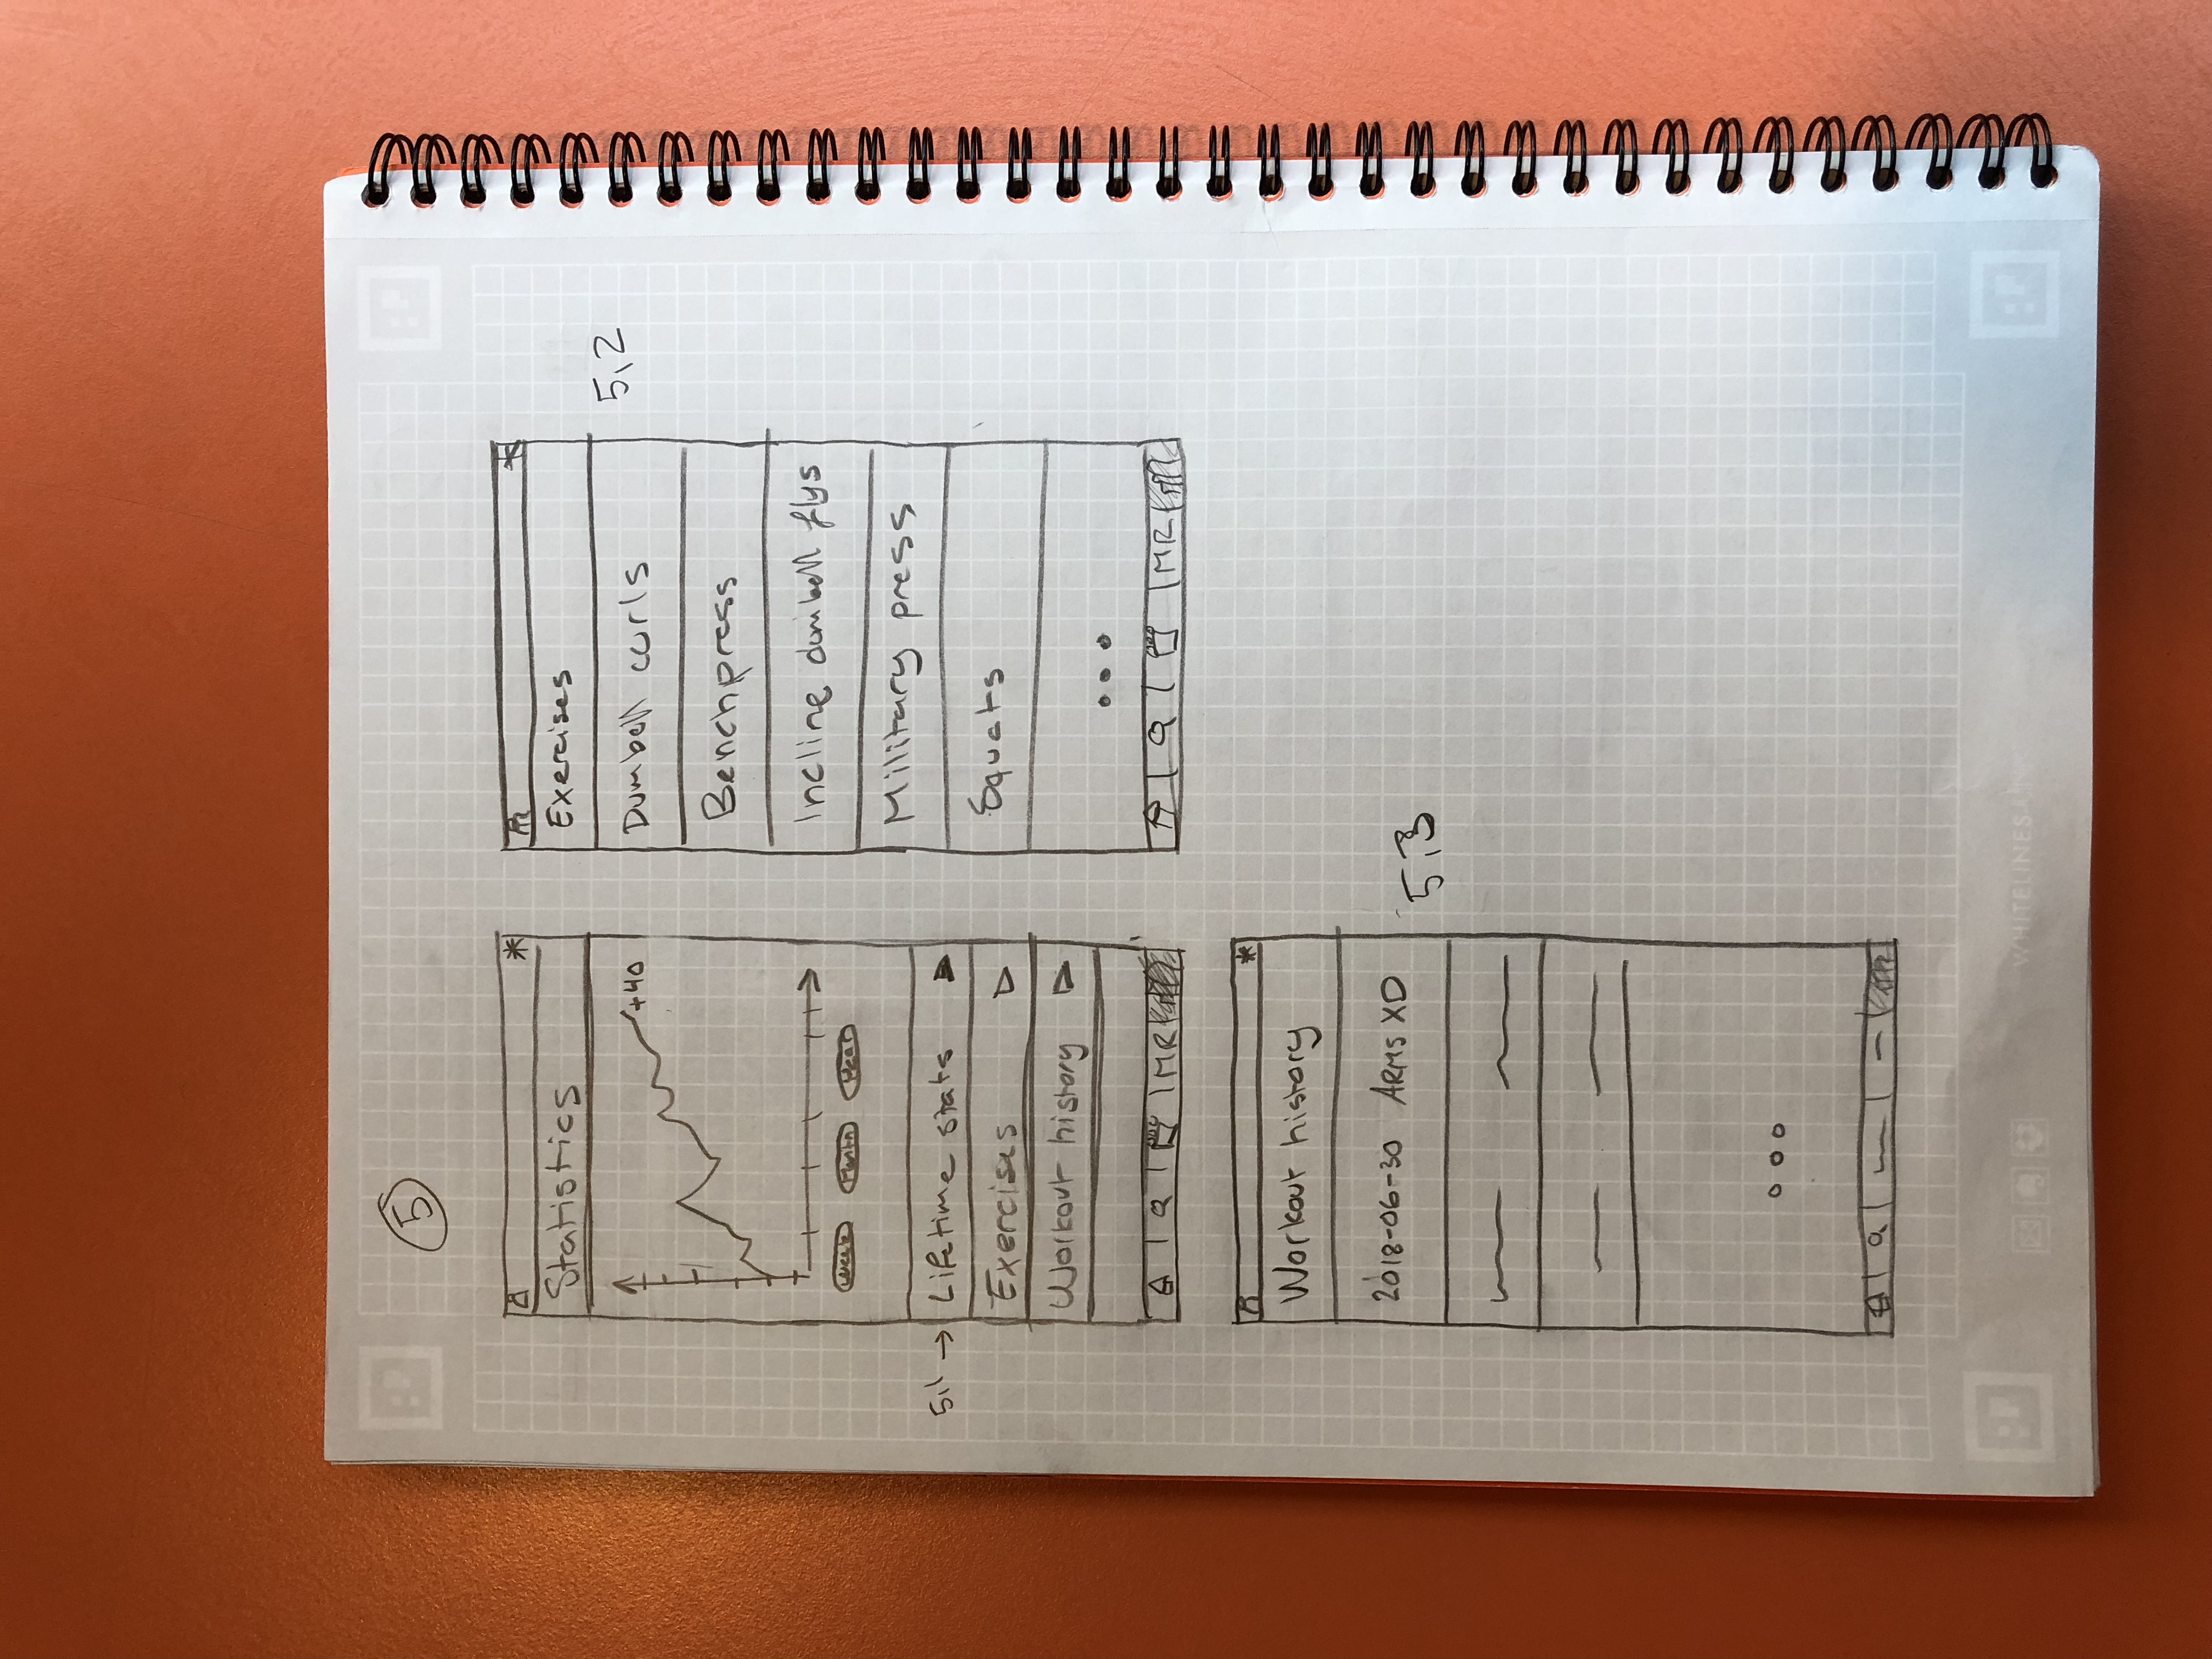 5
Statistics
+40
Week Month Year
5,1 → Lifetime stats
Exercises
Workout history
MR
Exercises
5,2
Dumbell curls
Benchpress
Incline dumbell flys
Military press
Squats
...
MR
Workout history
2018-06-30 ARMS XD
5,3
...
WHITELINES